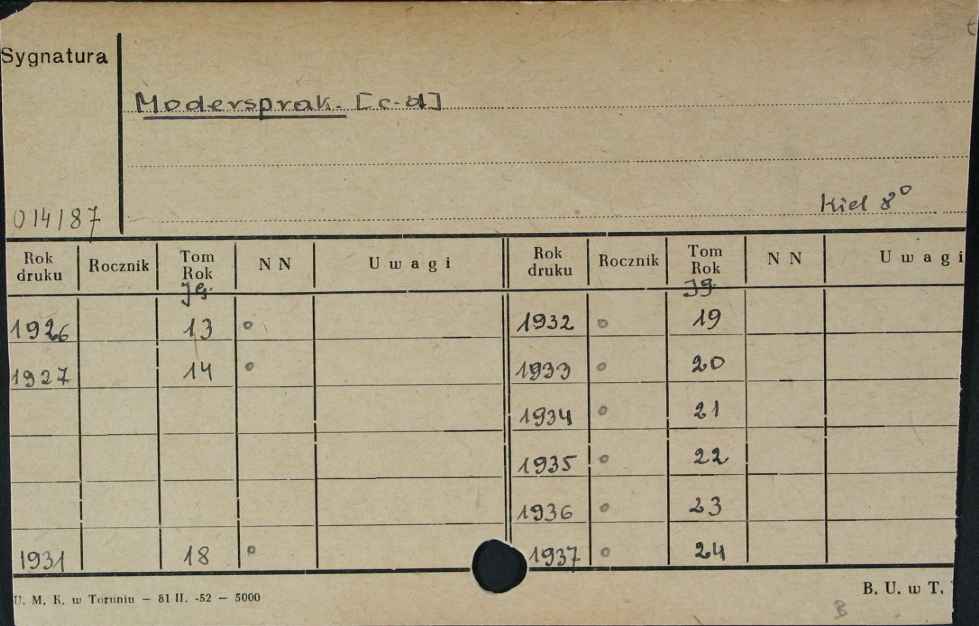 Sygnatura
Modersprak. [c-d]
014187
Kiel 8°
Rok druku Rocznik Tom Rok N N Uwagi Rok druku Rocznik Tom Rok N N Uwagi
Jg. Jg
1926 13 o 1932 o 19
1927 14 o 1933 o 20
1934 o 21
1935 o 22
1936 o 23
1931 18 o 1937 o 24
U. M. K. w Toruniu — 81 II. -52 — 5000
B. U. w T.
B